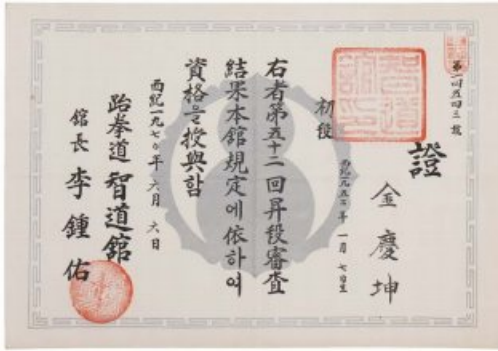 第一四五四三號
證
金慶坤
一月 七日生
初段
右者第五十二回昇段審査
結果本館規定에依하여
資格을授與함
西紀一九七○年六月 六日
跆拳道 智道館
館長 李鍾佑
智道館印